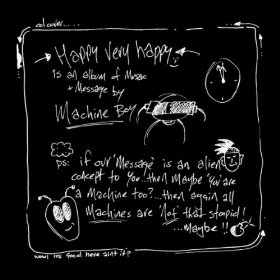 cd cover.....
Happy very happy
is an album of Music
+ Message by
Machine Boy
ps: if our "Message" is an alien
concept to you...then maybe you are
a machine too?...then again all
Machines are Not that stupid!!
...Maybe!!
wow! its good here aint it?